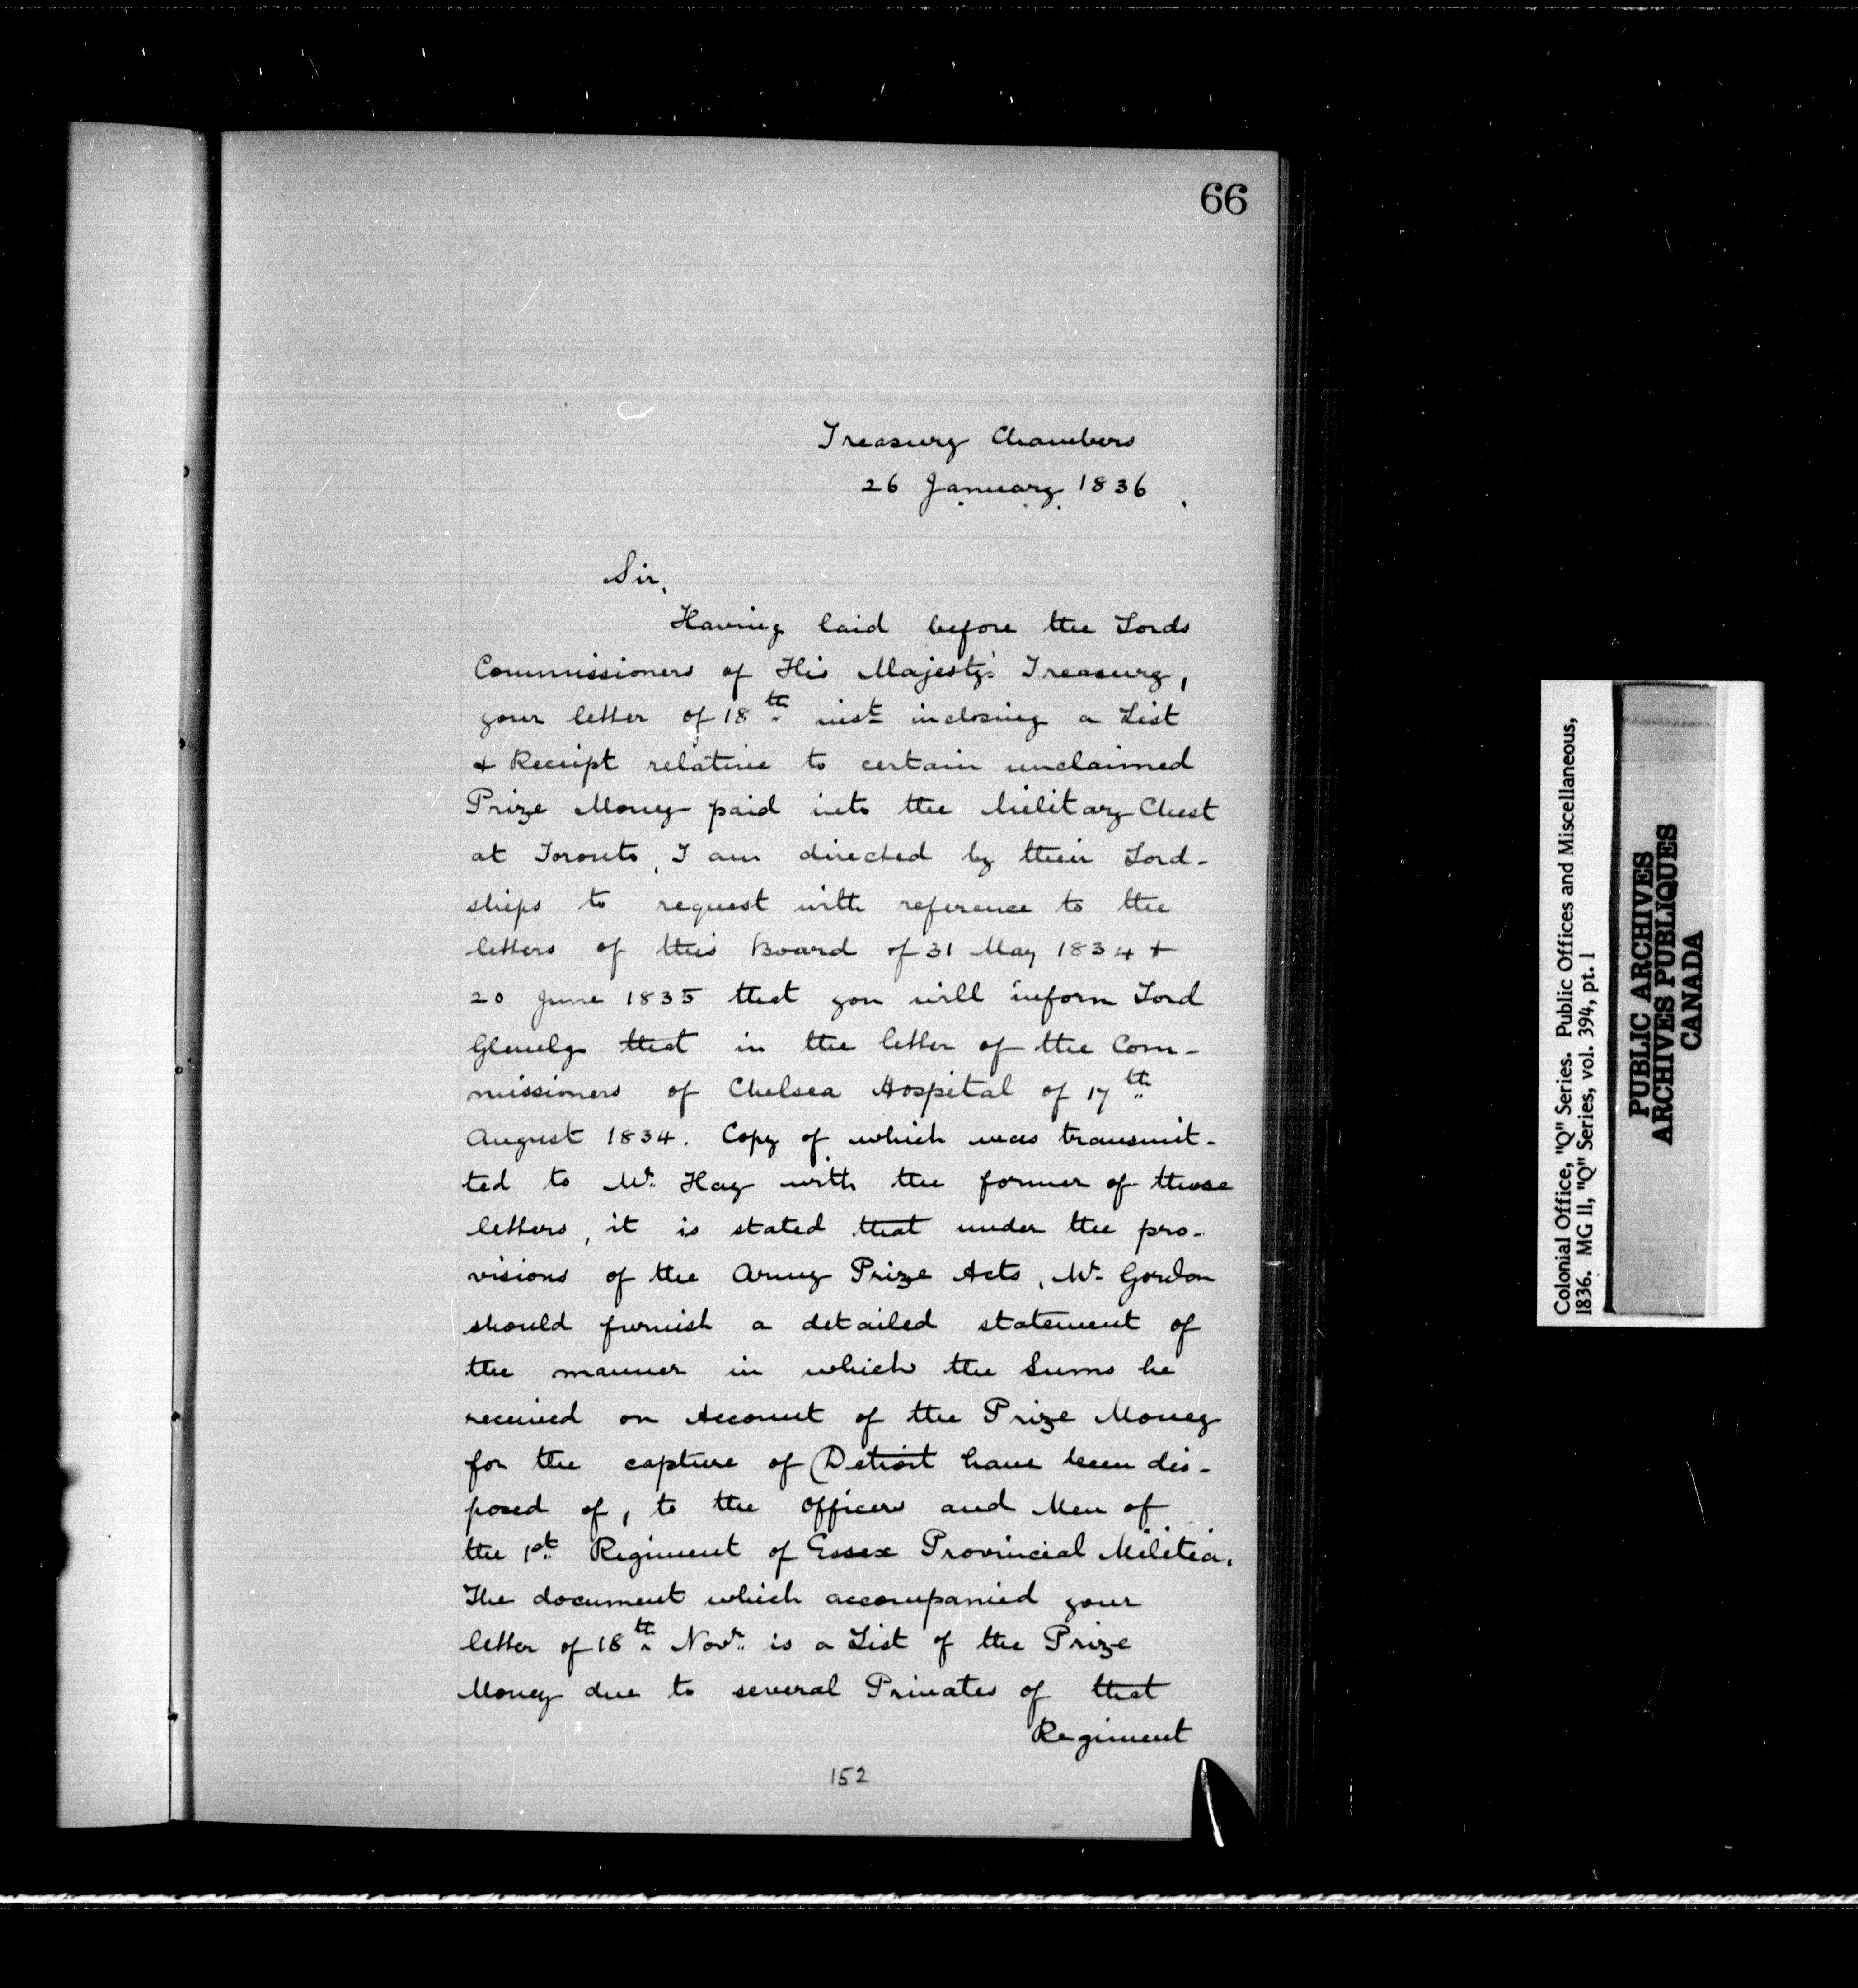 66
Treasury Chambers
26 January 1836
Sir,
Having laid before the Lords
Commissioners of His Majesty's Treasury,
your letter of 18th inst inclosing a List
& Receipt relative to certain unclaimed
Prize Money paid into the Military Chest
at Toronto, I am directed by their Lord-
ships to request with reference to the
letters of this Board of 31 May 1834 &
20 June 1835 that you will inform Lord
Glenelg that in the letter of the Com-
missioners of Chelsea Hospital of 17th
August 1834. Copy of which was transmit-
ted to Mr. Hay with the former of those
letters, it is stated that under the pro-
visions of the Army Prize Acts, Mr. Gordon
should furnish a detailed statement of
the manner in which the Sums he
received on Account of the Prize Money
for the capture of Detroit have been dis-
posed of, to the Officers and Men of
the 1st Regiment of Essex Provincial Militia.
The document which accompanied your
letter of 18th Novr. is a List of the Prize
Money due to several Privates of that
Regiment
152
Colonial Office, "Q" Series. Public Offices and Miscellaneous,
1836. MG 11, "Q" Series, vol. 394, pt. 1
PUBLIC ARCHIVES
ARCHIVES PUBLIQUES
CANADA